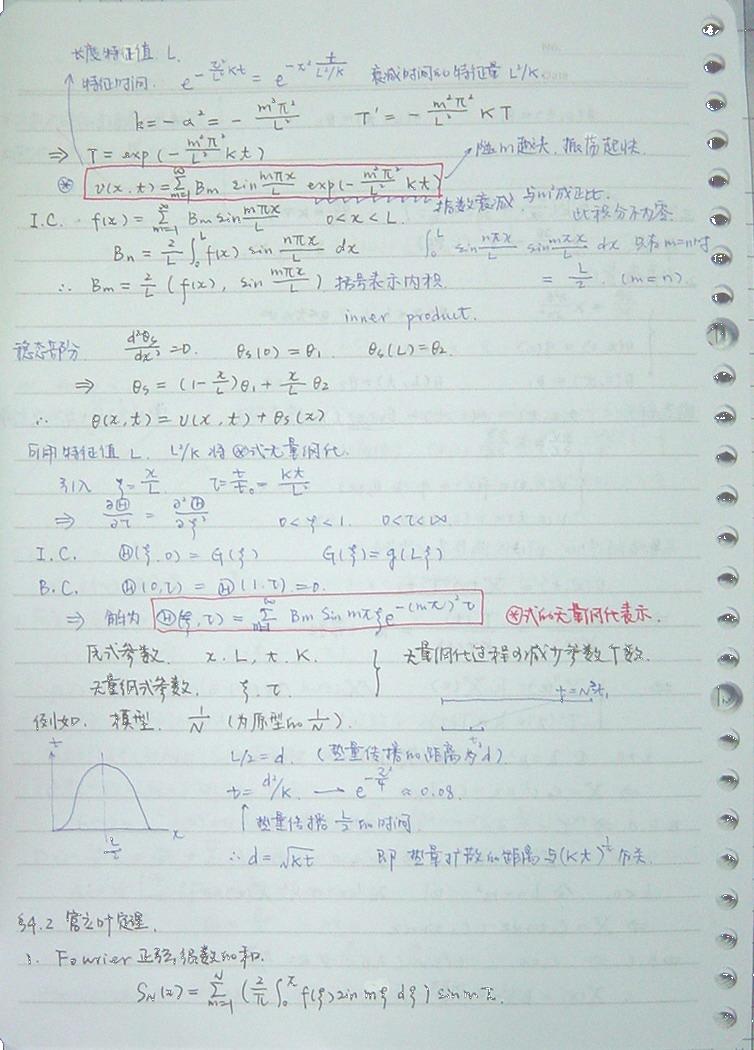 长度特征值 L.
特征时间. e^{-\frac{π²}{L²}Kt} = e^{-π² \frac{t}{L²/K}} 衰减时间的特征量 L²/K.
k = -α² = -\frac{m²π²}{L²} T' = -\frac{m²π²}{L²} K T
⇒ T = exp(-\frac{m²π²}{L²} K t)
⊛ v(x,t) = \sum_{m=1}^{∞} B_m sin\frac{mπx}{L} exp(-\frac{m²π²}{L²} K t) 随m越大, 振荡越快.
指数衰减, 与m²成正比.
I.C. f(x) = \sum_{m=1}^{∞} B_m sin\frac{mπx}{L} 0<x<L 此积分不为零
B_n = \frac{2}{L} \int_0^L f(x) sin\frac{nπx}{L} dx \int_0^L sin\frac{nπx}{L} sin\frac{mπx}{L} dx 只有m=n时
∴ B_m = \frac{2}{L} (f(x), sin\frac{mπx}{L}) 括号表示内积 = \frac{L}{2}. (m=n).
inner product.
稳态部分 \frac{d²θ_s}{dx²} = 0. θ_s(0) = θ_1 θ_s(L) = θ_2.
⇒ θ_s = (1-\frac{x}{L})θ_1 + \frac{x}{L}θ_2
∴ θ(x,t) = v(x,t) + θ_s(x)
可用特征值 L. L²/K 将⊛式无量纲化.
引入 ξ = \frac{x}{L} τ = \frac{t}{t_0} = \frac{Kt}{L²}
⇒ \frac{∂Θ}{∂τ} = \frac{∂²Θ}{∂ξ²} 0<ξ<1. 0<τ<∞
I.C. Θ(ξ,0) = G(ξ) G(ξ) = g(Lξ)
B.C. Θ(0,τ) = Θ(1,τ) = 0.
⇒ 解为 Θ(ξ,τ) = \sum_{m=1}^{∞} B_m sin mπξ e^{-(mπ)²τ} ⊛式的无量纲化表示.
原式参数. x. L. t. K. } 无量纲化过程可减少参数个数.
无量纲式参数. ξ. τ
t=N²t_1
例如. 模型. \frac{1}{N} (为原型的\frac{1}{N}).
t x \frac{L}{2}
L/2 = d. (热量传播的距离为d)
t = d²/K. → e^{-\frac{π²}{4}} ≈ 0.08.
↑ 热量传播\frac{L}{2}的时间
∴ d = \sqrt{Kt} 即 热量扩散的距离与(Kt)^{\frac{1}{2}}有关.
§4.2 富立叶定理.
1. Fourier 正弦级数的和.
S_N(x) = \sum_{m=1}^{N} (\frac{2}{π} \int_0^π f(ξ) sin mξ dξ) sin mx.